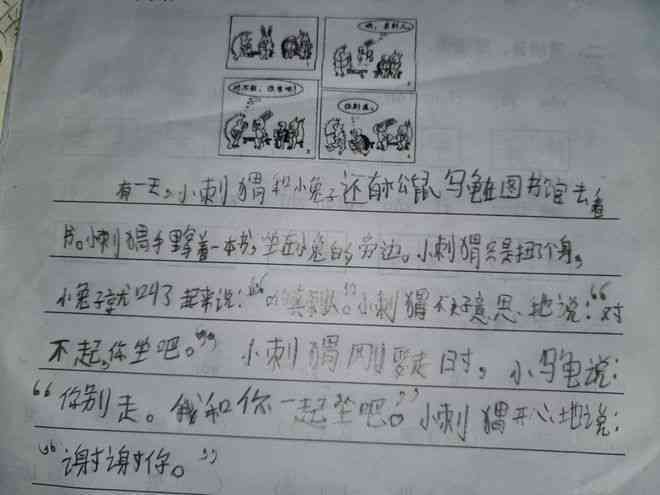 哦,真刺人。
对不起,你坐吧!
你别走。
有一天,小刺猬和小兔子还有小松鼠乌龟在图书馆去看
书。小刺猬手里拿着一本书,坐在小兔的旁边。小刺猬只是扭了个身,
小兔子就叫了起来说:“哎真刺人。”小刺猬不好意思地说:“对
不起,你坐吧。” 小刺猬刚要走时,小乌龟说:
“你别走。我和你一起坐吧。”小刺猬开心地说:
“谢谢你。”